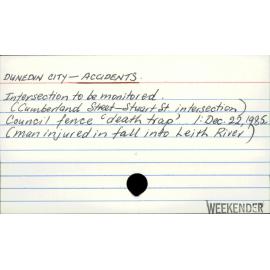 DUNEDIN CITY — ACCIDENTS.
Intersection to be monitored.
(Cumberland Street—Stuart St. intersection)
Council fence 'death trap' 1: Dec. 22, 1985
(man injured in fall into Leith River)
WEEKENDER